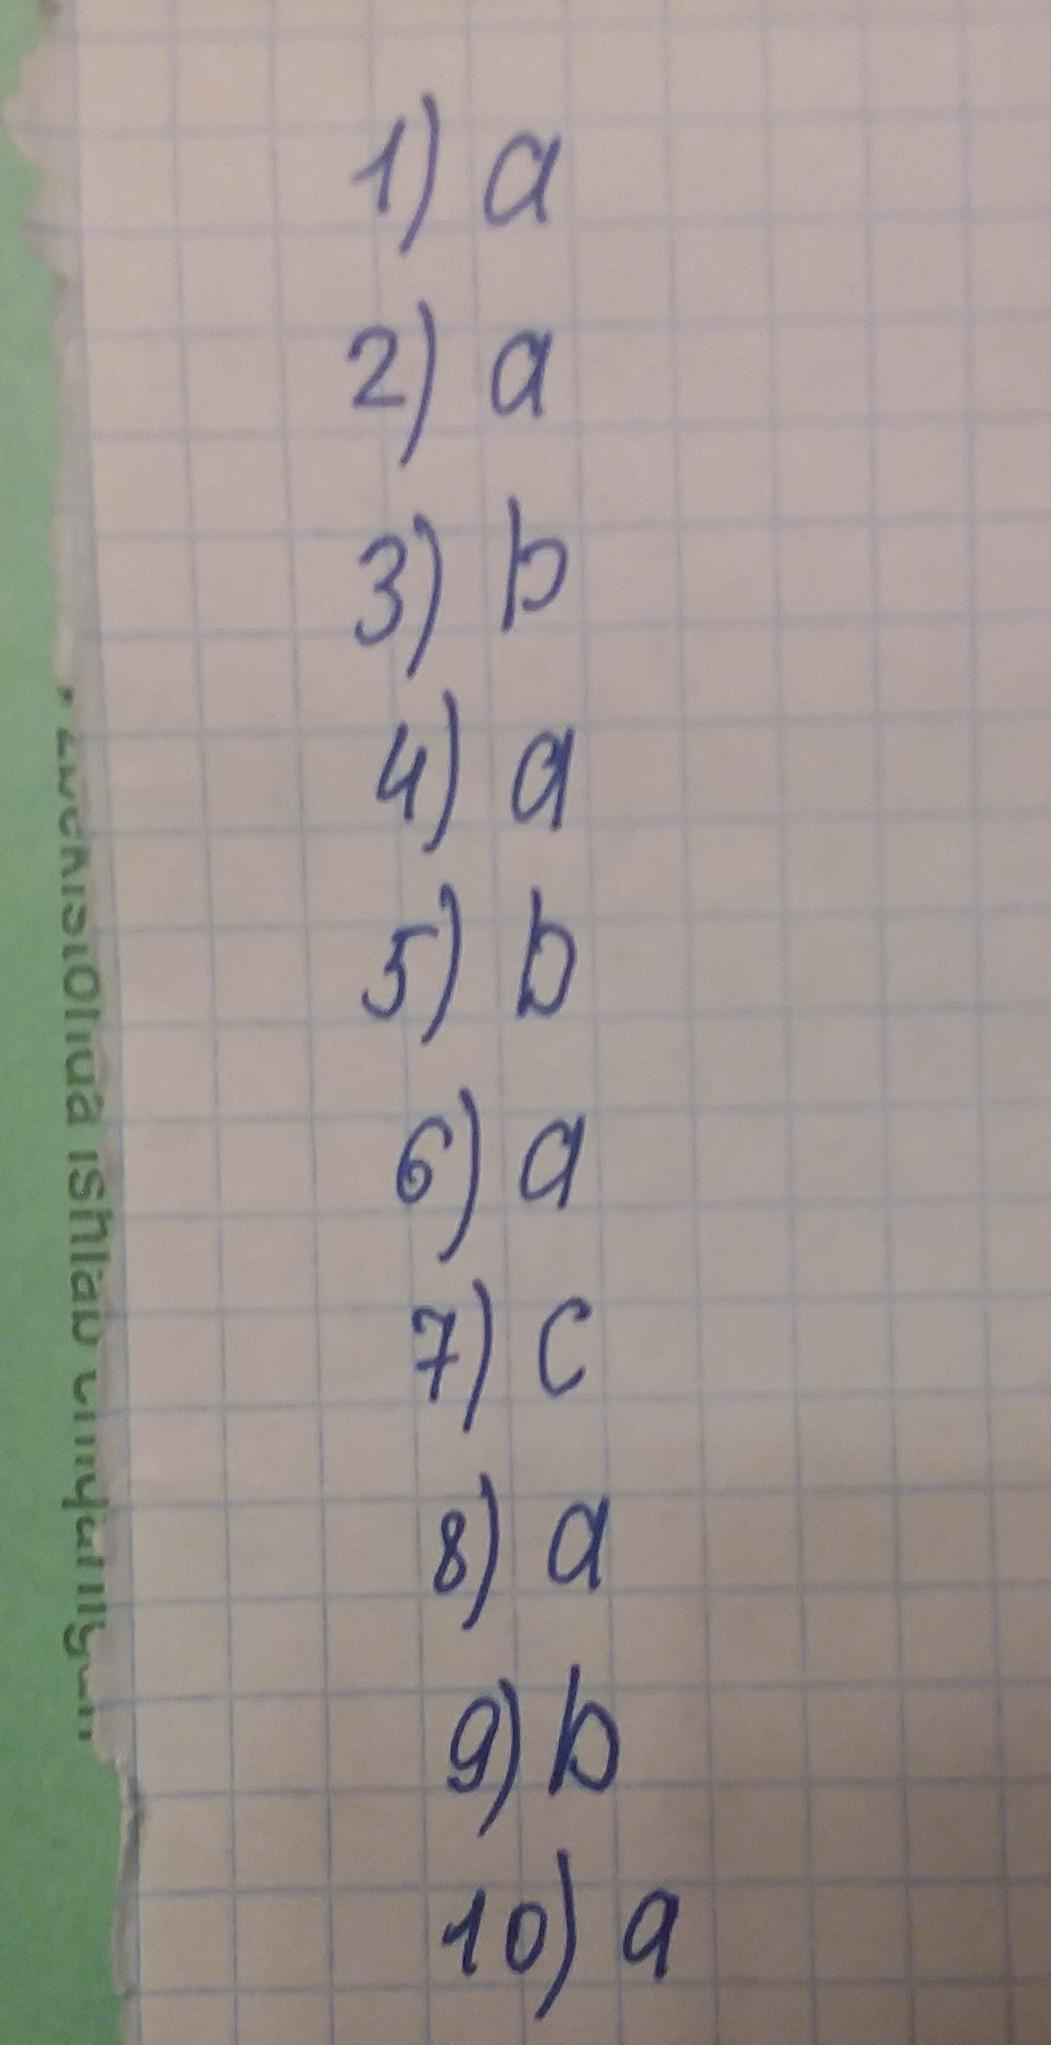 1) a
2) a
3) b
4) a
5) b
6) a
7) c
8) a
9) b
10) a